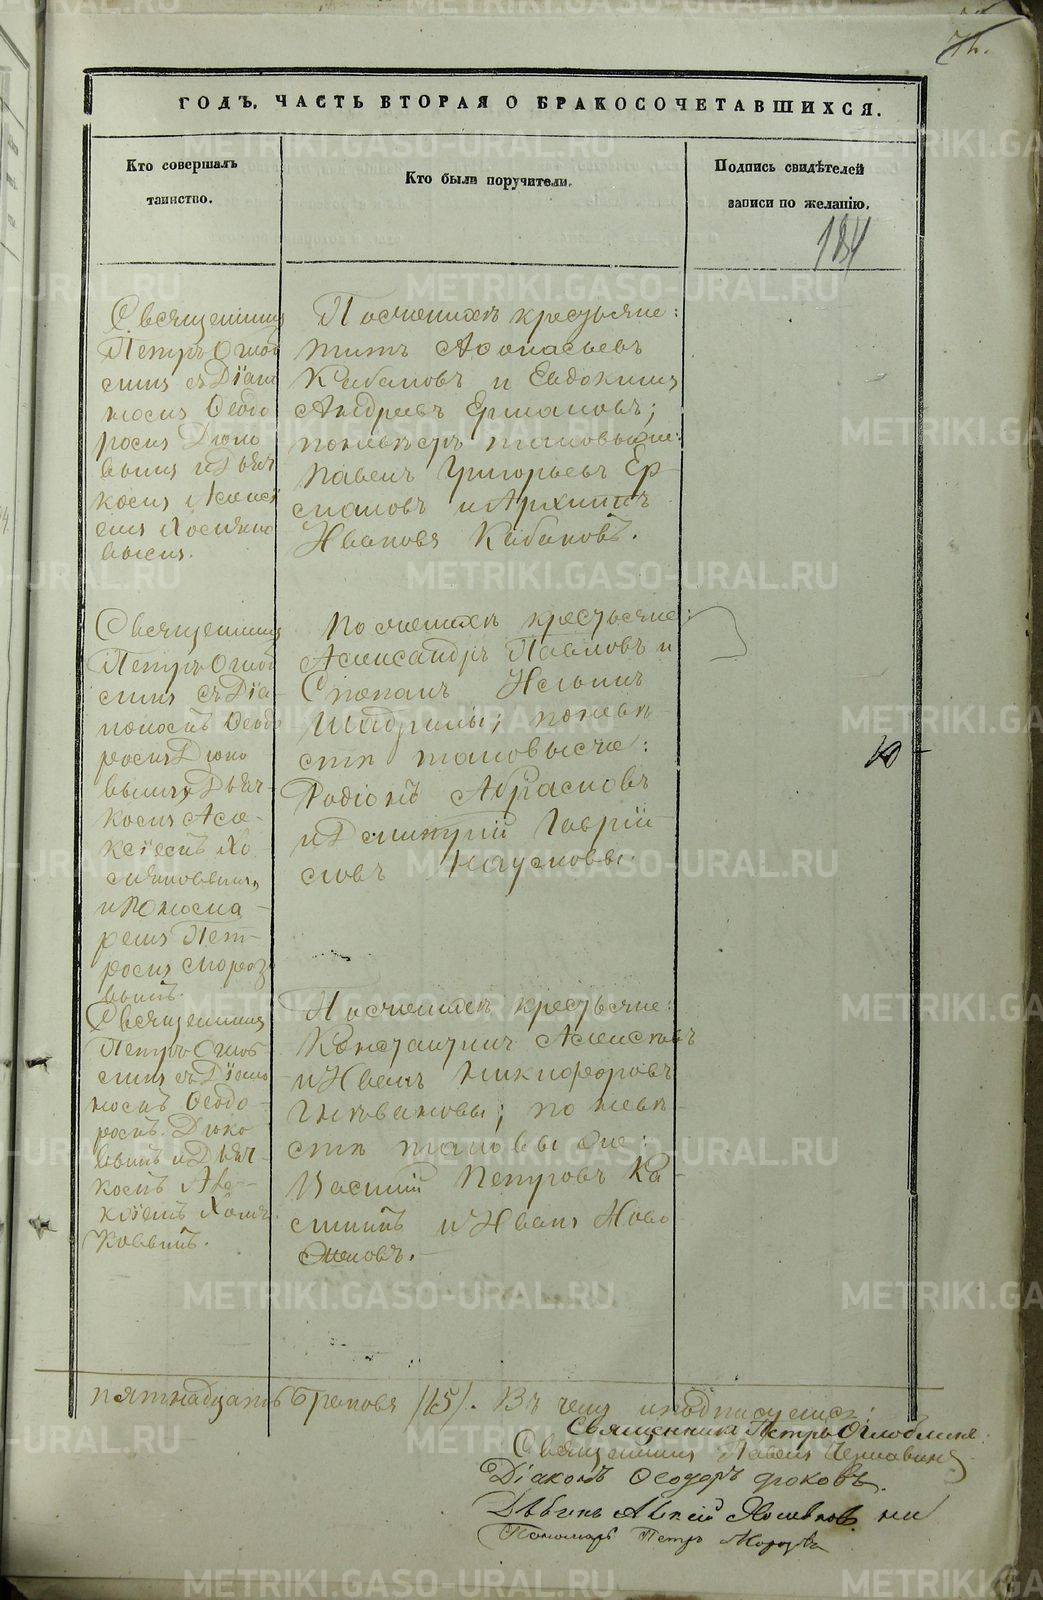 72.
ГОДЪ. ЧАСТЬ ВТОРАЯ О БРАКОСОЧЕТАВШИХСЯ.
Кто совершалъ
таинство.
Кто были поручители.
Подпись свидѣтелей
записи по желанію.
184
Священникъ
Петръ Оглоб
линъ съ Діако
номъ Ѳеодо
ромъ
и Дьяч
комъ Алексѣ
емъ Хомяко
вымъ.
По женихѣ крестьяне:
Титъ Аѳонасьевъ
Кабановъ и Евдокимъ
Андреевъ Ермаковъ;
по невѣстѣ таковые же:
Павелъ Григорьевъ Ер
маковъ и Архипъ
Ивановъ Кабановъ.
Священникъ
Петръ Оглоб
линъ съ Діа-
кономъ Ѳеодо
ромъ
Дьяч-
комъ Але-
ксѣемъ Хо
мяковымъ,
и Понома-
ремъ Пет-
ромъ Мороз
вымъ.
По женихѣ крестьяне:
Александръ Павловъ и
Степанъ Ильинъ
Шадрины; по невѣ
стѣ таковые же:
Родіонъ Абрамовъ
и Дмитрій Гаврій
ловъ Наумовы.
Священникъ
Петръ Оглоб
линъ съ Діако
номъ Ѳеодо-
ромъ
и Дьяч-
комъ Але-
ксѣемъ Хомя
ковымъ.
По женихѣ крестьяне:
Константинъ Алексѣевъ
и Иванъ Никифоровъ
по невѣ-
стѣ таковые же:
Василій Петровъ Ка-
и Иванъ
пятнадцать браковъ /15/. Въ чемъ и подписуемся:
Священникъ Петръ Оглоблинъ.
Священникъ Павелъ
Діаконъ Ѳеодоръ
Алексій Хомяковъ
Пономарь Петръ Морозовъ
METRIKI.GASO-URAL.RU